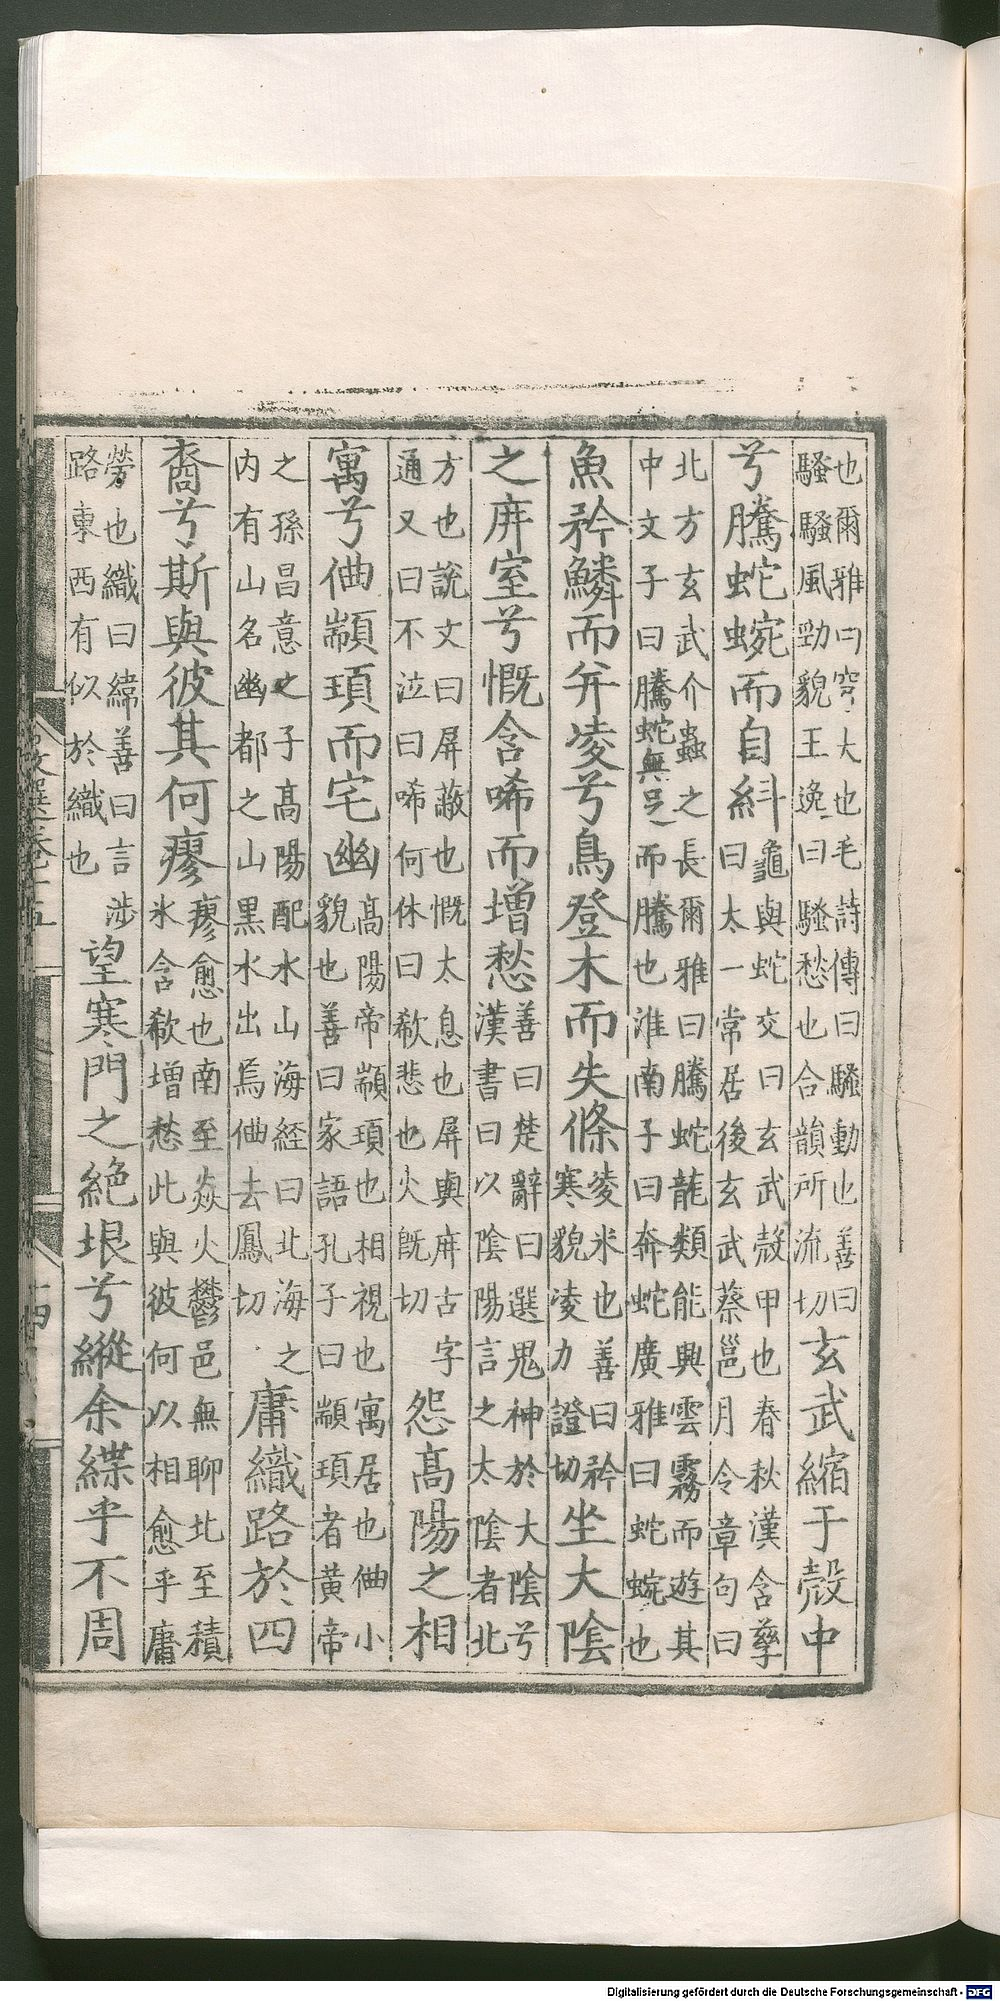 也爾雅曰穹大也毛詩傳曰騷動也善曰
騷騷風勁貌王逸曰騷愁也合韻所流切
玄武縮于殼中
兮騰蛇蜿而自糾
龜與蛇交曰玄武殼甲也春秋漢含孳
曰太一常居後玄武蔡邕月令章句曰
北方玄武介蟲之長爾雅曰騰蛇龍類能興雲霧而遊其
中文子曰騰蛇無足而騰也淮南子曰奔蛇廣雅曰蛇蜿也
魚矜鱗而并凌兮鳥登木而失條
凌氷也善曰矜
寒貌凌力證切
坐大陰
之庰室兮慨含唏而增愁
善曰楚辭曰選鬼神於大陰兮
漢書曰以陰陽言之太陰者北
方也說文曰屏蔽也慨太息也屏與庰古字
通又曰不泣曰唏何休曰欷悲也火旣切
怨髙陽之相
寓兮㑋顓頊而宅幽
髙陽帝顓頊也相視也寓居也㑋小
貌也善曰家語孔子曰顓頊者黃帝
之孫昌意之子髙陽配水山海經曰北海之
内有山名幽都之山黑水出焉㑋去鳳切
庸織路於四
裔兮斯與彼其何瘳
瘳愈也南至焱火鬱邑無聊北至積
氷含欷增愁此與彼何以相愈乎庸
勞也織曰緯善曰言涉
路東西有似於織也
望寒門之絶垠兮縱余緤乎不周
文選卷十五
十四
Digitalisierung gefördert durch die Deutsche Forschungsgemeinschaft - DFG